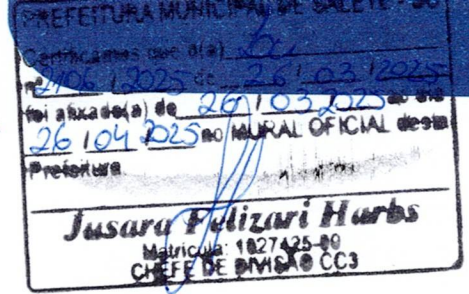 PREFEITURA MUNICIPAL DE SALETE - SC
Certificamos que o(a) Lei
nº 2106 / 2025 de 26 / 03 / 2025
foi afixado(a) de 26 / 03 / 2025 ao dia
26 / 04 / 2025 no MURAL OFICIAL desta
Prefeitura
Jusara Felizari Harbs
Matrícula: 1827425-00
CHEFE DE DIVISÃO CC3